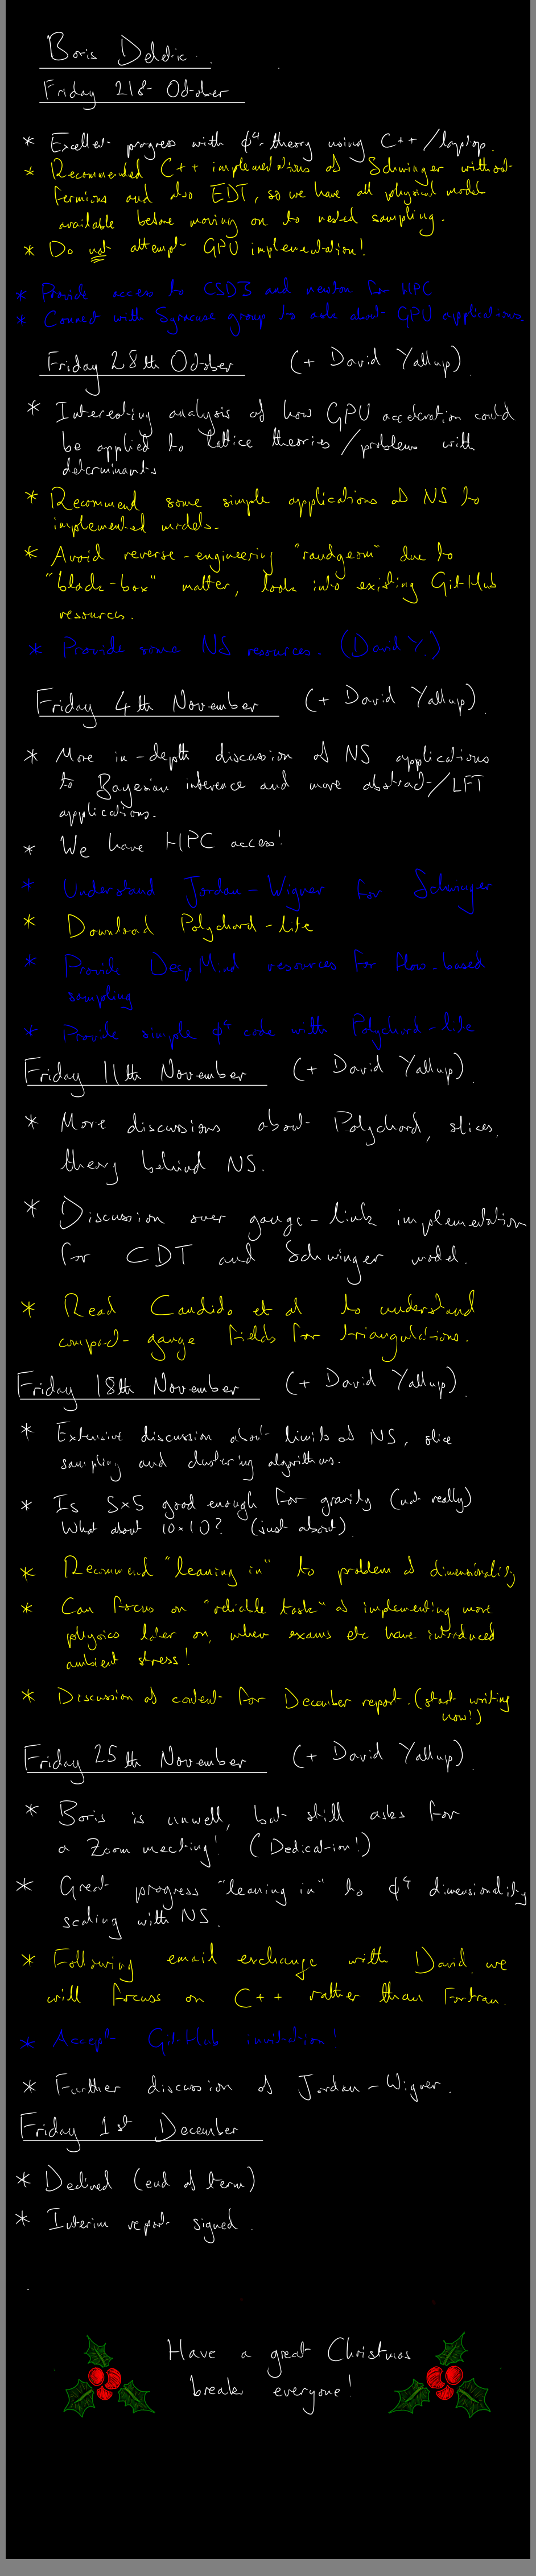 Boris Deletic.
Friday 21st October
* Excellent progress with ϕ⁴-theory using C++/laptop.
* Recommended C++ implementations of Schwinger without
fermions and also EDT, so we have all physical models
available before moving on to nested sampling.
* Do not attempt GPU implementation!
* Provide access to CSD3 and newton for HPC
* Connect with Syracuse group to ask about GPU applications.
Friday 28th October (+ David Yallup).
* Interesting analysis of how GPU acceleration could
be applied to lattice theories/problems with
determinants
* Recommend some simple applications of NS to
implemented models.
* Avoid reverse-engineering "randgeom" due to
"black-box" matter, look into existing GitHub
resources.
* Provide some NS resources. (David Y.)
Friday 4th November (+ David Yallup).
* More in-depth discussion of NS applications
to Bayesian inference and more abstract/LFT
applications.
* We have HPC access!
* Understand Jordan-Wigner for Schwinger
* Download Polychord-lite
* Provide DeepMind resources for flow-based
sampling
* Provide simple ϕ⁴ code with Polychord-lite
Friday 11th November (+ David Yallup).
* More discussions about Polychord, slices,
theory behind NS.
* Discussion over gauge-link implementation
for CDT and Schwinger model.
* Read Candido et al to understand
compact gauge fields for triangulations.
Friday 18th November (+ David Yallup).
* Extensive discussion about limits of NS, slice
sampling and clustering algorithms.
* Is 5×5 good enough for gravity (not really)
What about 10×10? (just about).
* Recommend "leaning in" to problem of dimensionality
* Can focus on "reliable task" of implementing more
physics later on, when exams etc have introduced
ambient stress!
* Discussion of content for December report. (start writing
now!)
Friday 25th November (+ David Yallup).
* Boris is unwell, but still asks for
a Zoom meeting! (Dedication!)
* Great progress "leaning in" to ϕ⁴ dimensionality
scaling with NS.
* Following email exchange with David, we
will focuss on C++ rather than Fortran.
* Accept GitHub invitation!
* Further discussion of Jordan-Wigner.
Friday 1st December
* Declined (end of term)
* Interim report signed.
Have a great Christmas
break everyone!